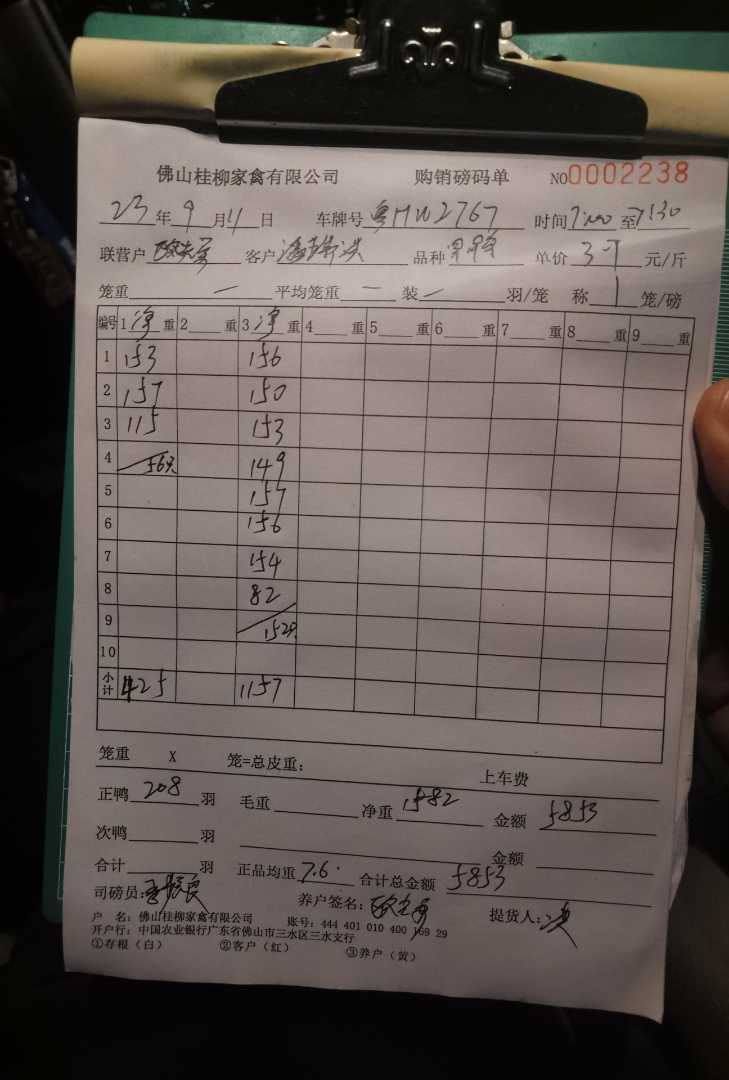 佛山桂柳家禽有限公司 购销磅码单 NO0002238
23年9月11日 车牌号粤HW2767 时间7:00至7:30
联营户 客户 品种 单价37元/斤
笼重— 平均笼重— 装—羽/笼 称1笼/磅
编号 1净重 2重 3净重 4重 5重 6重 7重 8重 9重
1 153 156
2 157 150
3 115 153
4 56只 149
5 157
6 156
7 154
8 82
9 152只
10
小计 425 1157
笼重 X 笼=总皮重: 上车费
正鸭208羽 毛重 净重1582 金额5853
次鸭 羽 金额
合计 羽 正品均重7.6 合计总金额5853
司磅员: 养户签名: 提货人:
户 名:佛山桂柳家禽有限公司 账号:444 401 010 400 169 29
开户行:中国农业银行广东省佛山市三水区三水支行
①存根(白) ②客户(红) ③养户(黄)